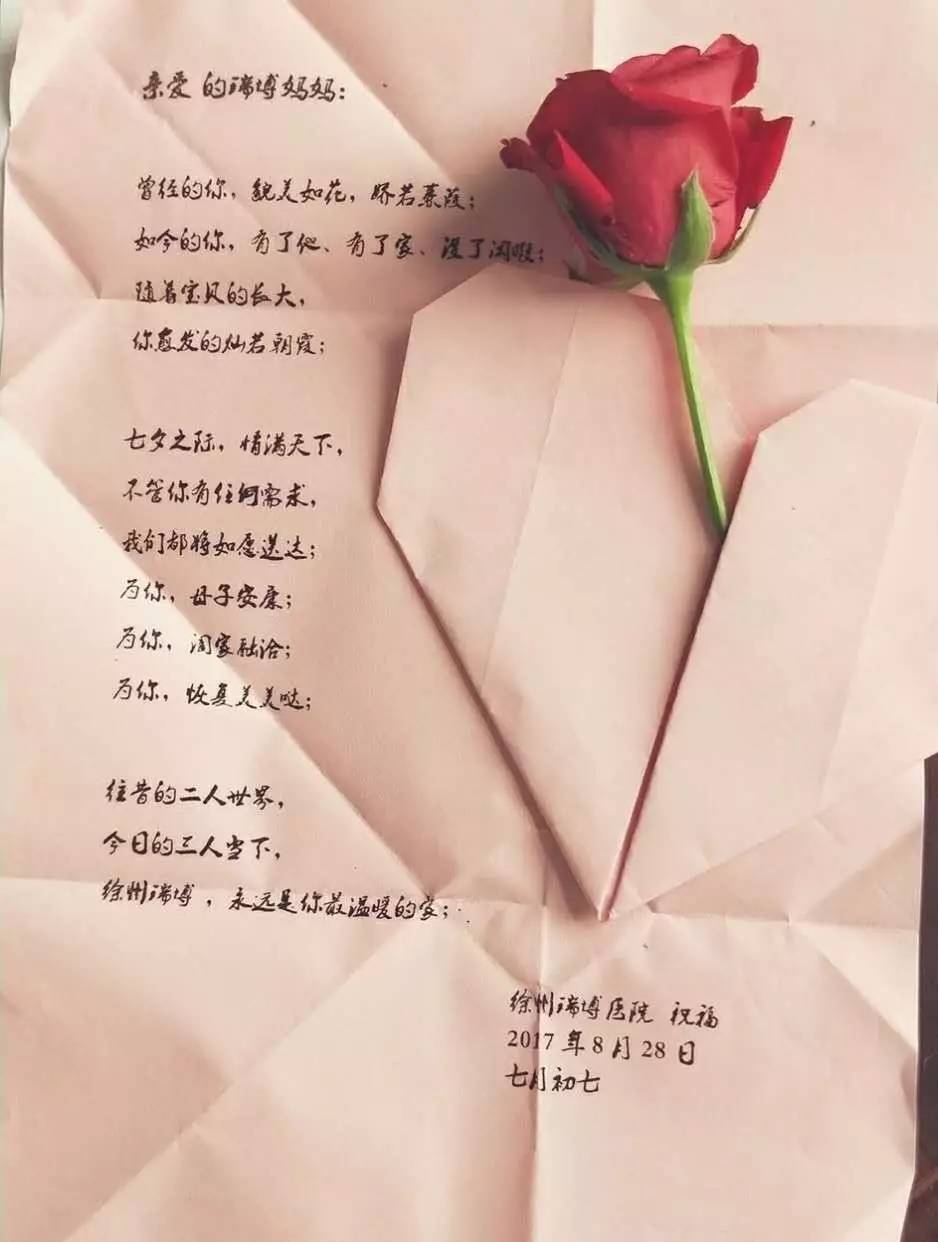 亲爱的瑞博妈妈：
曾经的你，貌美如花，娇若慕葭；
如今的你，有了他、有了家、没了闲暇；
随着宝贝的长大，
你愈发的灿若朝霞；
七夕之际，情满天下，
不管你有任何需求，
我们都将如愿送达；
为你，母子安康；
为你，阖家融洽；
为你，恢复美美哒；
往昔的二人世界，
今日的三人当下，
徐州瑞博，永远是你最温暖的家；
徐州瑞博医院 祝福
2017 年 8 月 28 日
七月初七